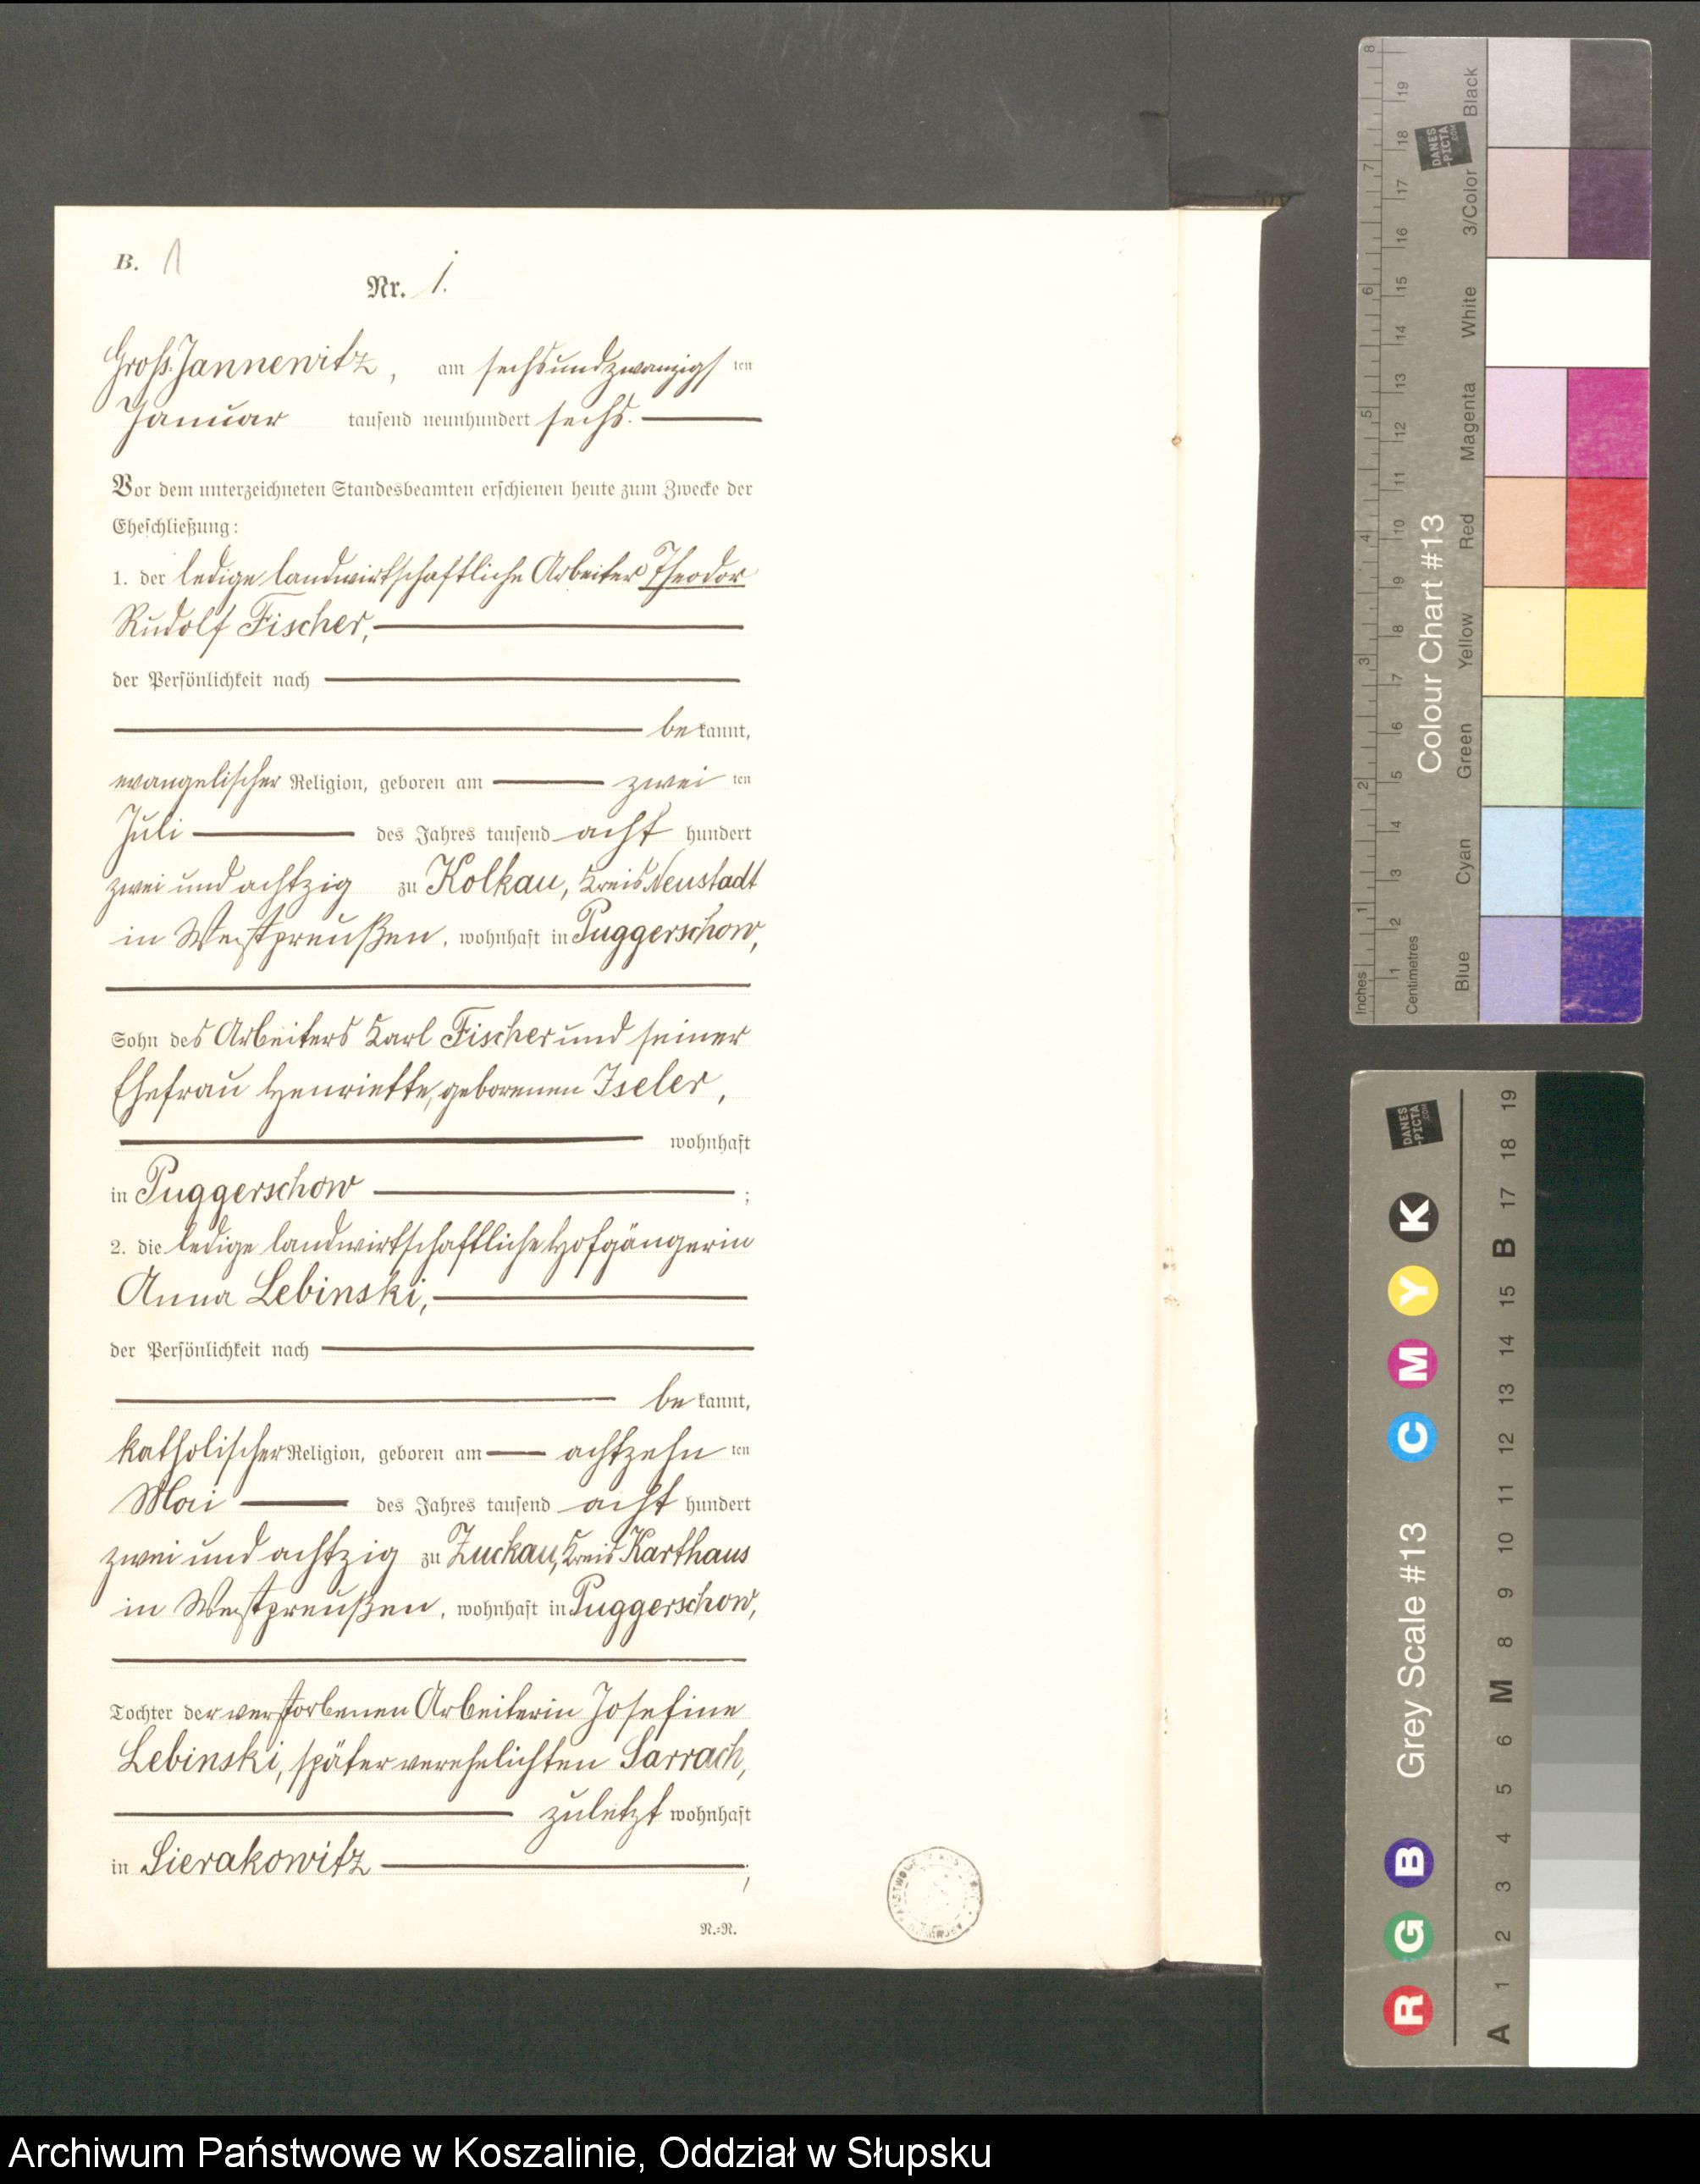 B. 1
Nr. 1.
Groß Jannewitz, am sechsundzwanzigsten
Januar tausend neunhundert sechs.
Vor dem unterzeichneten Standesbeamten erschienen heute zum Zwecke der
Eheschließung:
1. der ledige landwirtschaftliche Arbeiter Theodor
Rudolf Fischer,
der Persönlichkeit nach
bekannt,
evangelischer Religion, geboren am zweiten
Juli des Jahres tausend acht hundert
zwei und achtzig zu Kolkau, Kreis Neustadt
in Westpreußen, wohnhaft in Puggerschow,
Sohn des Arbeiters Karl Fischer und seiner
Ehefrau Henriette, geborenen Iseler,
wohnhaft
in Puggerschow ;
2. die ledige landwirtschaftliche Hofgängerin
Anna Lebinski,
der Persönlichkeit nach
bekannt,
katholischer Religion, geboren am achtzehnten
Mai des Jahres tausend acht hundert
zwei und achtzig zu Zuckau, Kreis Karthaus
in Westpreußen, wohnhaft in Puggerschow,
Tochter der verstorbenen Arbeiterin Josefine
Lebinski, später verehelichten Sarrach,
zuletzt wohnhaft
in Sierakowitz ;
N.=R.
Inches 1 2 3 4 5 6 7 8
Centimetres 1 2 3 4 5 6 7 8 9 10 11 12 13 14 15 16 17 18 19
Colour Chart #13
Blue Cyan Green Yellow Red Magenta White 3/Color Black
DANES
-PICTA
.COM
Grey Scale #13
R G B C M Y K
A 1 2 3 4 5 6 M 8 9 10 11 12 13 14 15 B 17 18 19
DANES
-PICTA
.COM
Archiwum Państwowe w Koszalinie, Oddział w Słupsku